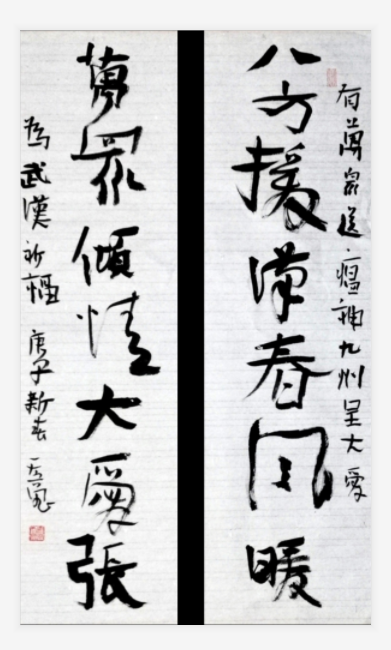 有萬眾送瘟神九州呈大愛
八方援漢春風暖
萬眾傾情大愛張
為武漢祈福 庚子新春